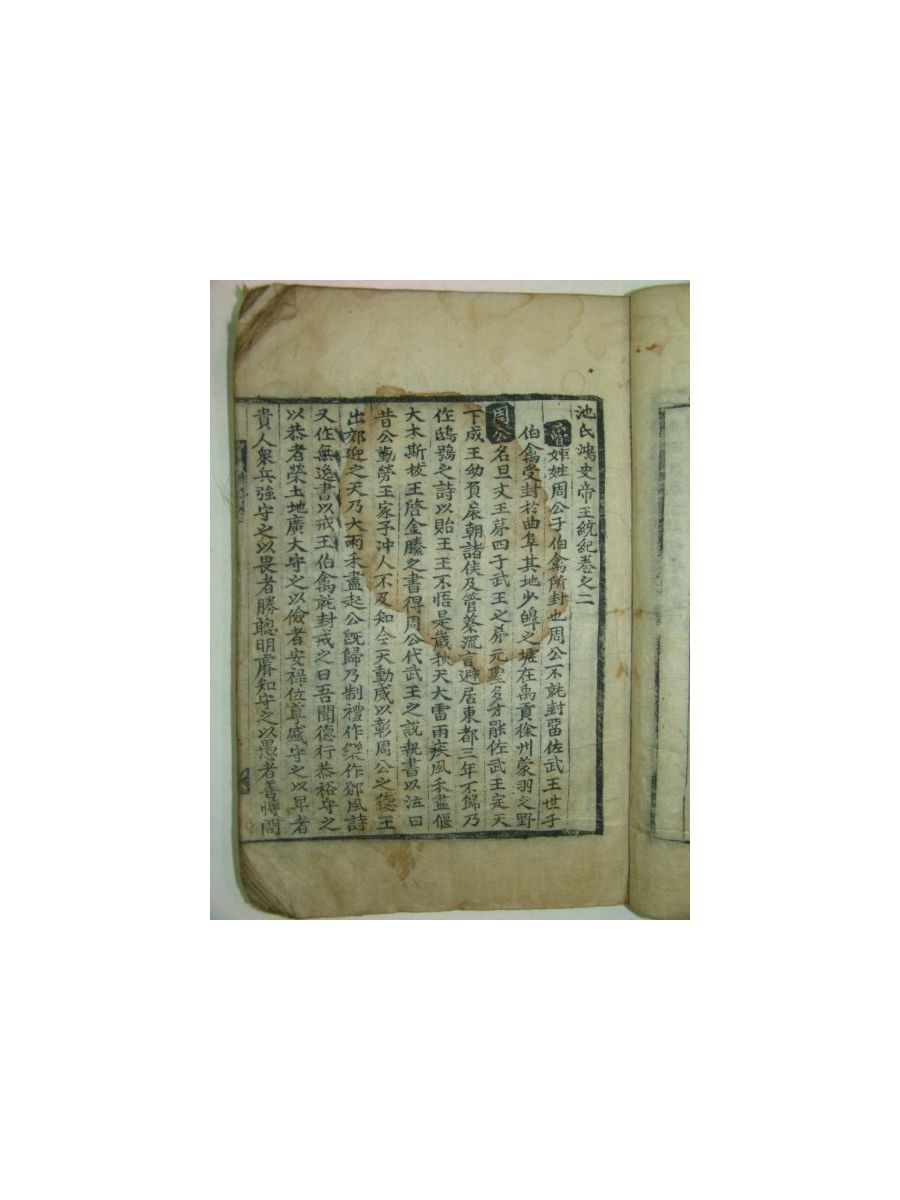 池氏鴻史帝王統紀卷之二
魯姬姓周公子伯禽所封也周公不就封留佐武王世子
伯禽受封於曲阜其地少皥之墟在禹貢徐州蒙羽之野
周公名旦文王苐四子武王之弟元聖多才能佐武王定天
下成王幼負扆朝諸侯及管蔡流言避居東都三年不歸乃
作鴟鴞之詩以貽王王不悟是歲秋天大雷雨疾風禾盡偃
大木斯拔王啓金縢之書得周公代武王之說執書以泣曰
昔公勤劳王家予冲人不及知今天動威以彰周公之德王
出郊迎之天乃大雨禾盡起公旣歸乃制禮作樂作邠風詩
又作無逸書以戒王伯禽就封戒之曰吾聞德行恭裕守之
以恭者榮土地廣大守之以儉者安祿位尊盛守之以卑者
貴人衆兵強守之以畏者勝聰明睿知守之以愚者善博聞